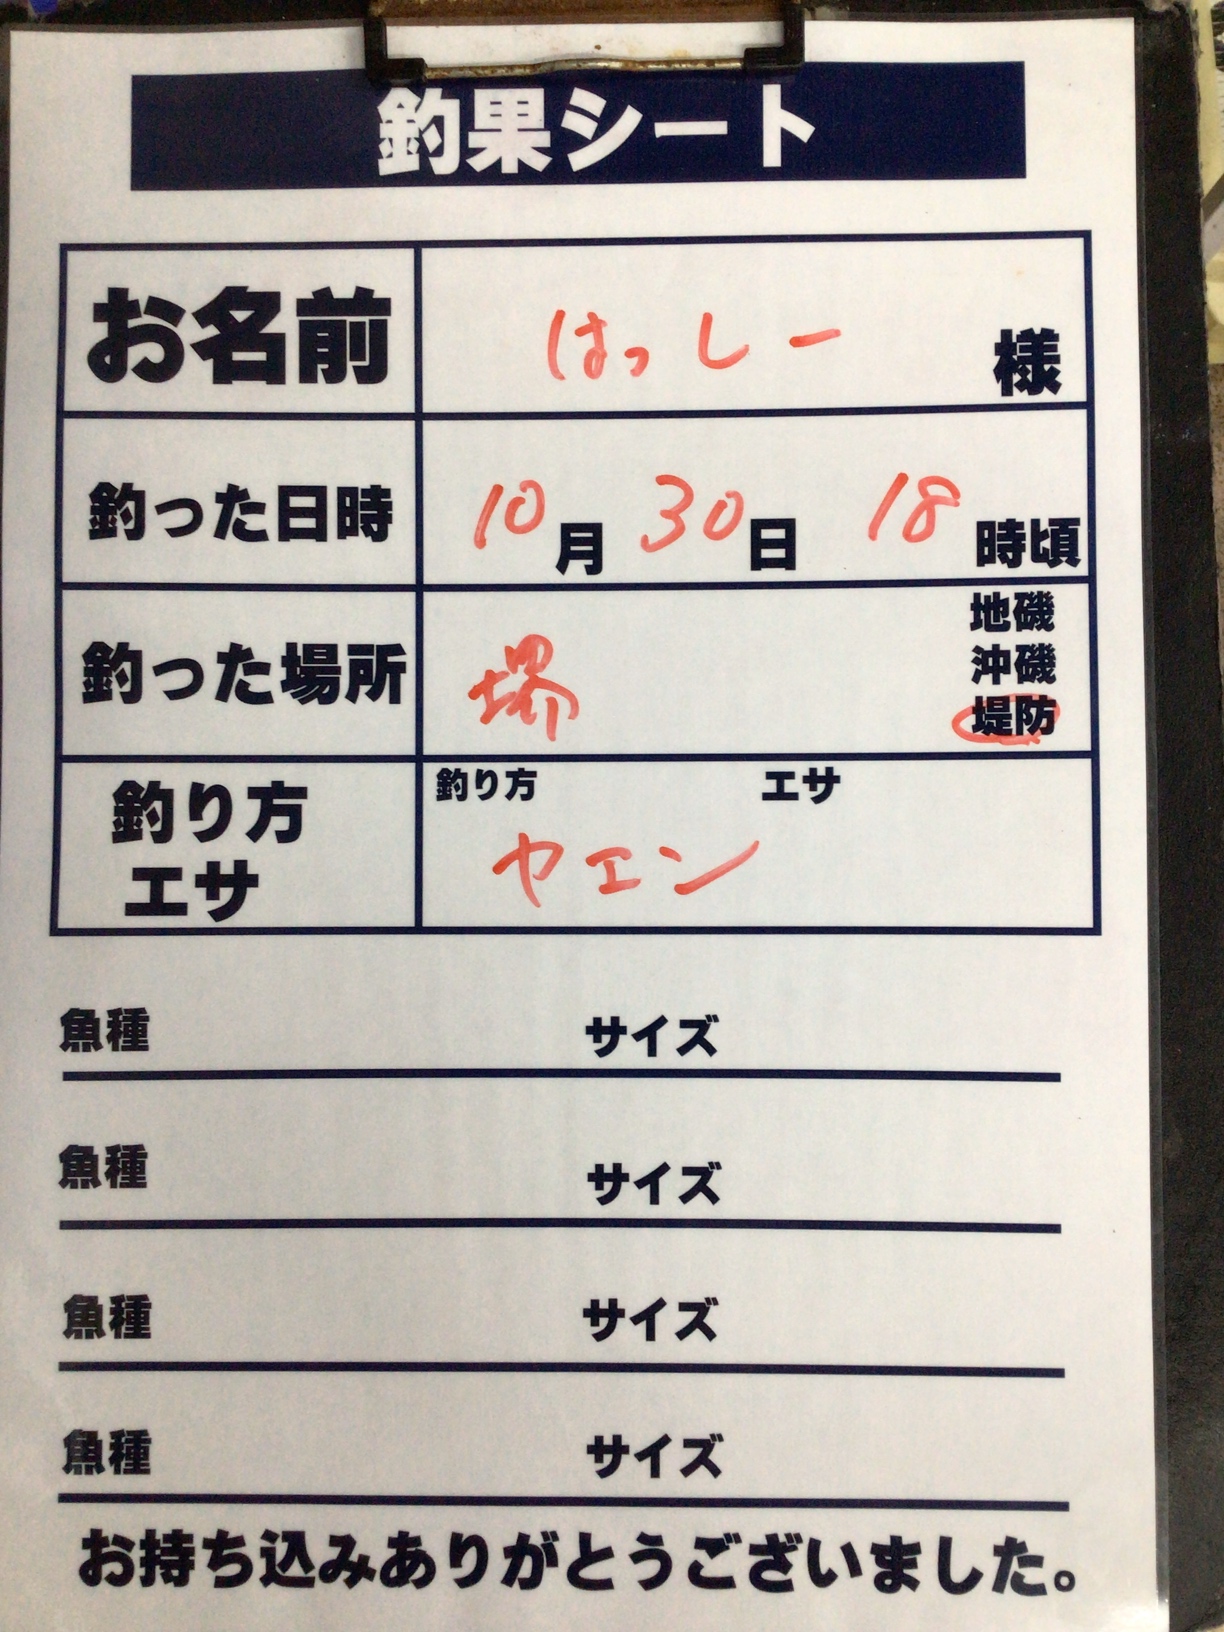 釣果シート
お名前 はっしー 様
釣った日時 10月30日 18時頃
釣った場所 堺 地磯
沖磯
堤防
釣り方
エサ
釣り方 エサ
ヤエン
魚種 サイズ
魚種 サイズ
魚種 サイズ
魚種 サイズ
お持ち込みありがとうございました。